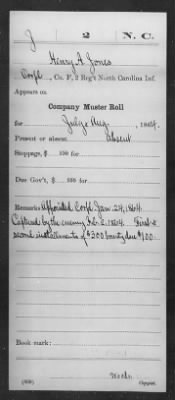 J 2 N. C.
Henry A. Jones
Corpl., Co. F, 2 Reg't North Carolina Inf.
Appears on
Company Muster Roll
for July & Aug., 1864.
Present or absent absent
Stoppage, $ 100 for
Due Gov't, $ 100 for
Remarks: Appointed Corpl. Jan. 24, 1864.
Captured by the enemy Feb. 2, 1864. First &
second installments of $300 bounty due $100.
Book mark:
(858) Copyist.